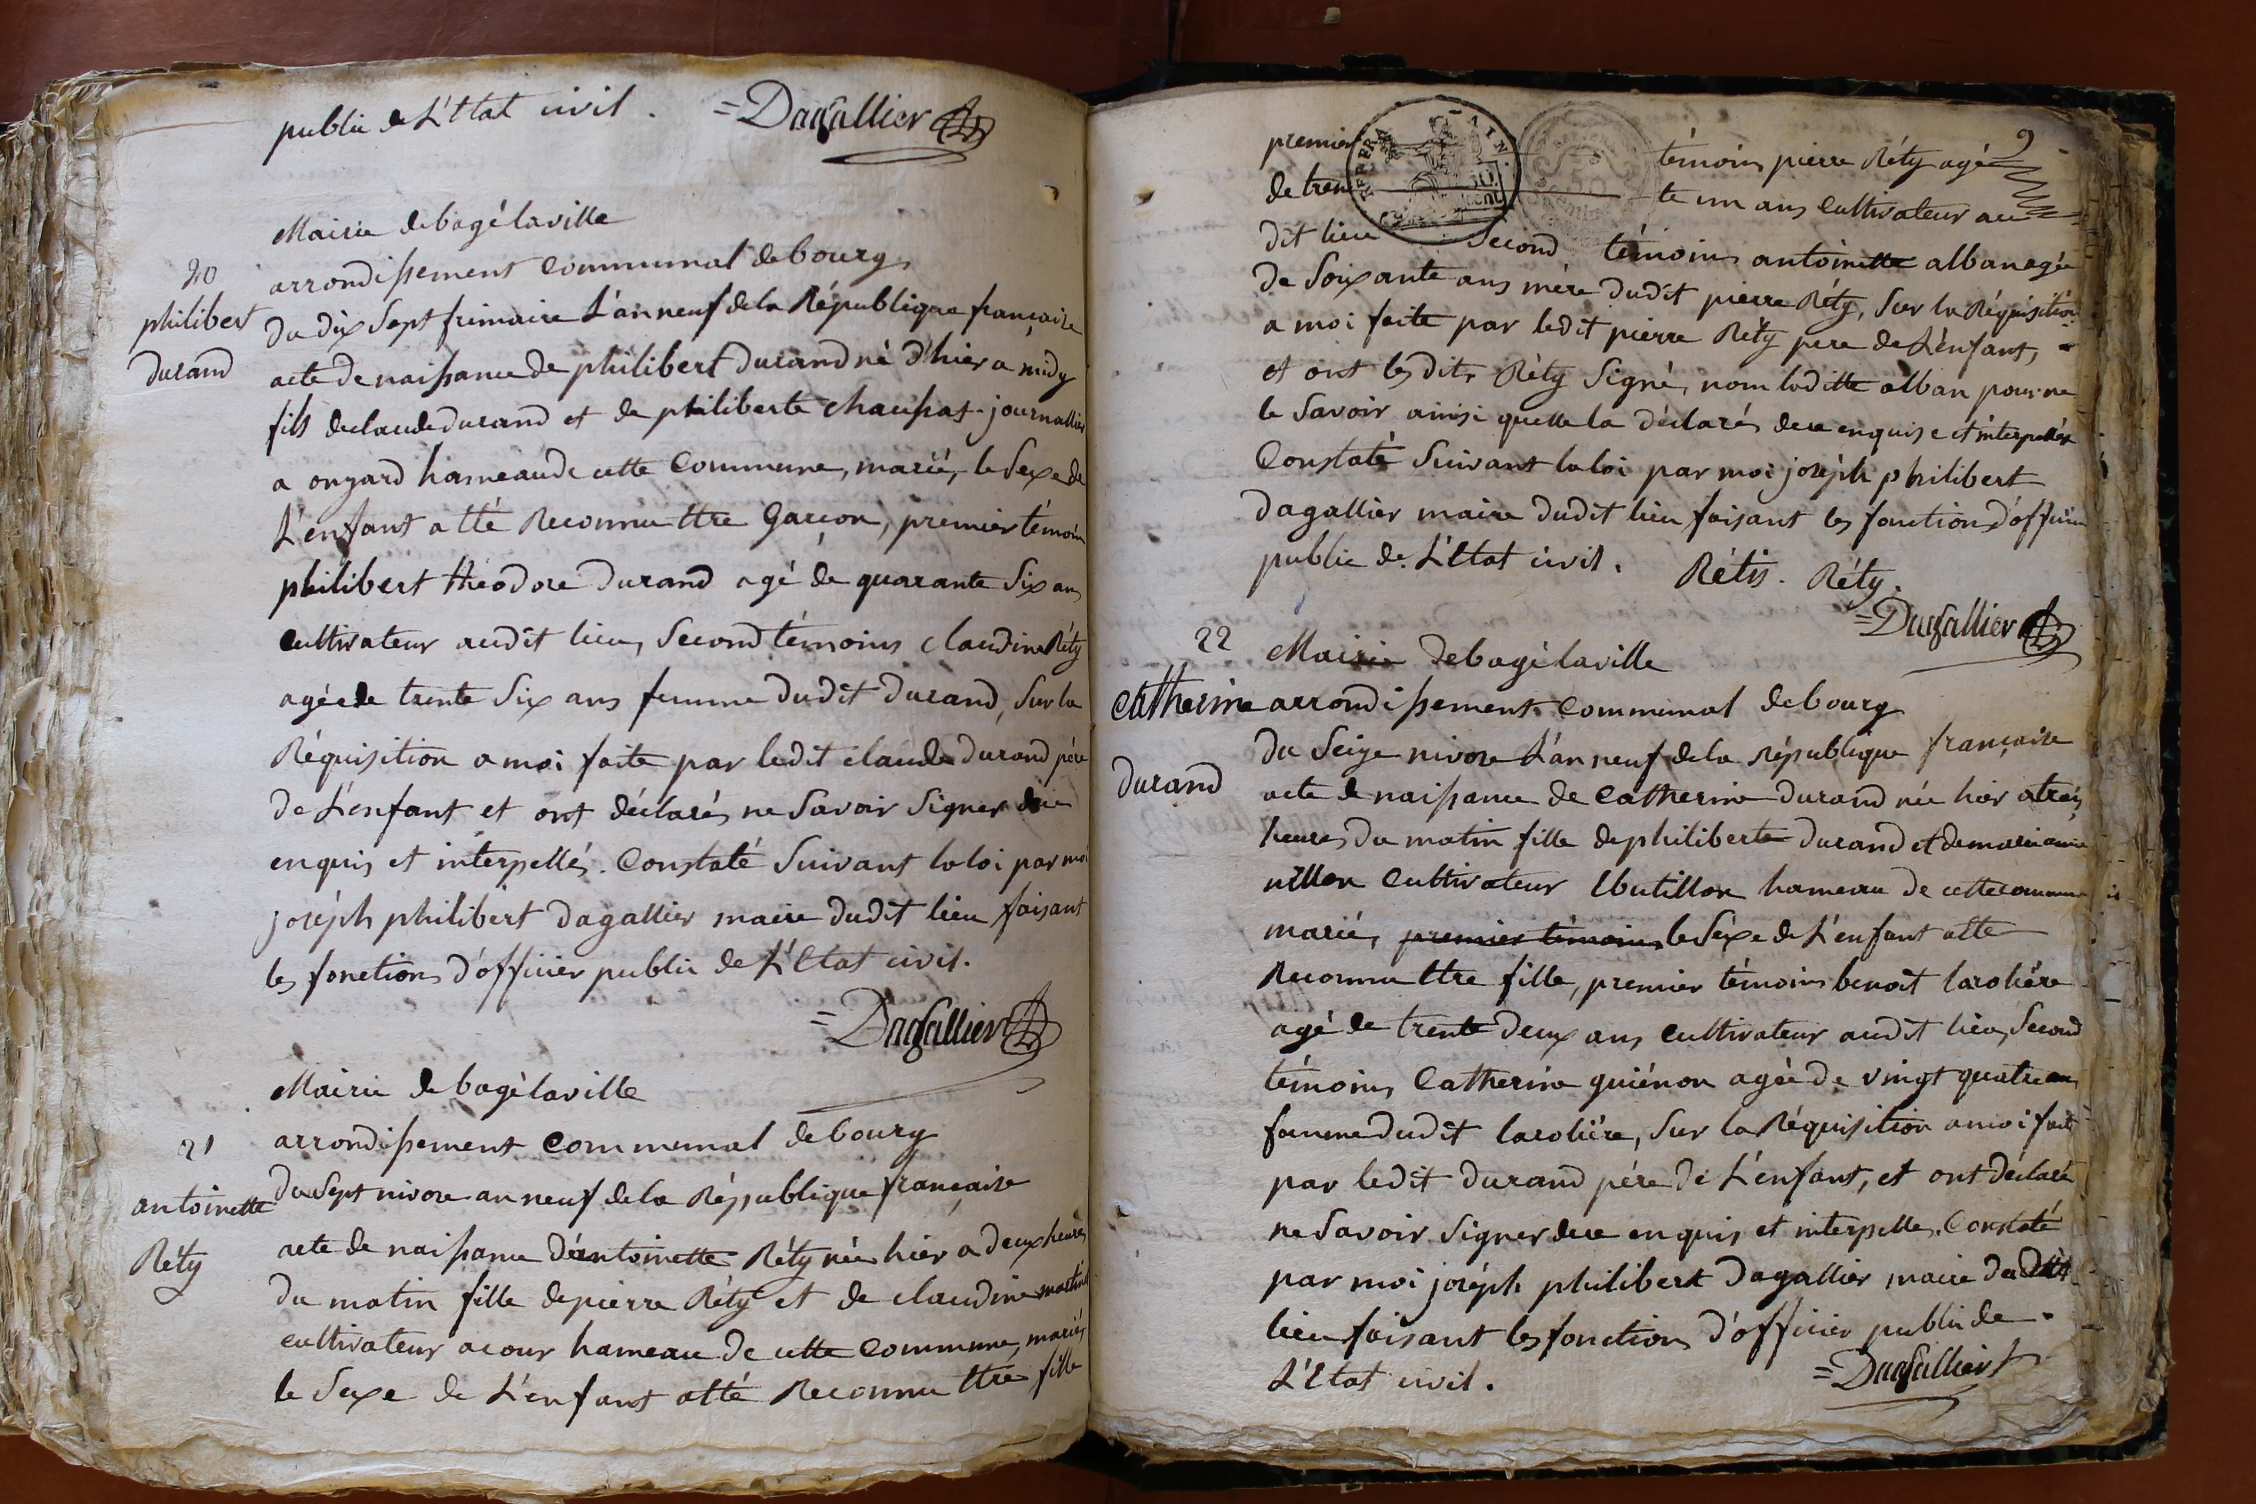 public de L'Etat civil. = Dagallier
Mairie de bagé laville
arrondissement communal de bourg
20
philibert
durand
du dix sept frimaire L'an neuf de la République française
acte de naissance de philibert durand né d'hier a midy
fils de claude durand et de philiberte chaussat journallier
a ongard hameau de cette Commune, mariés, le Sexe de
L'enfant a été Reconnu Etre Garçon, premier témoin
philibert théodore Durand agé de quarante Six ans
cultivateur audit lieu, Second témoins claudine Réty
agée de trente Six ans femme dudit Durand, Sur la
Réquisition a moi faite par ledit claude Durand pére
de L'enfant et ont déclarés ne Savoir Signer de ce
enquis et interpellés. Constaté Suivant la loi par moi
joséph philibert Dagallier maire dudit lieu faisant
les fonctions d'officier public de L'Etat civil.
= Dagallier
Mairie de bagé laville
arrondissement communal de bourg
21
antoinette
Réty
du Sept nivose an neuf de la République française
acte de naissance d'antoinette Réty née hier a deux heures
du matin fille de pierre Réty et de claudine
cultivateur a cour hameau de cette Commune, mariés
le Sexe de L'enfant a été Reconnu Etre fille
9
premier témoin pierre Réty agé
de trente un ans cultivateur au
dit lieu Second témoins antoinette alban agée
de Soixante ans mère dudit pierre Réty, Sur la Réquisition
a moi faite par ledit pierre Réty pere de L'enfant,
et ont les dits Réty Signé, nom laditte alban pour ne
le Savoir ainsi quelle la déclarés de ce enquise et interpellée
Constaté Suivant la loi par moi joséph philibert
Dagallier maire dudit lieu faisant les fonction d'officier
public de L'Etat civil. Rétis. Réty.
= Dagallier
22
Catherine
durand
Mairie de bagé laville
arrondissement communal de bourg
du Seize nivose L'an neuf de la République française
acte de naissance de Catherine durand née hier a trois
heures du matin fille de philiberte durand et de marianne
cultivateur hameau de cette commune
mariés, premier témoins le Sexe de L'enfant a été
Reconnu Etre fille, premier témoins benoit laroliére
agé de trente deux ans cultivateur audit lieu, Second
témoins, Catherine guiénon agée de vingt quatre ans
femme dudit laroliére, Sur la Réquisition a moi faite
par ledit durand pére de L'enfant, et ont déclaré
ne Savoir Signer de ce enquis et interpelle, Constaté
par moi joséph philibert Dagallier maire dudit
lieu faisant les fonction d'officier public de
L'Etat civil. = Dagallier